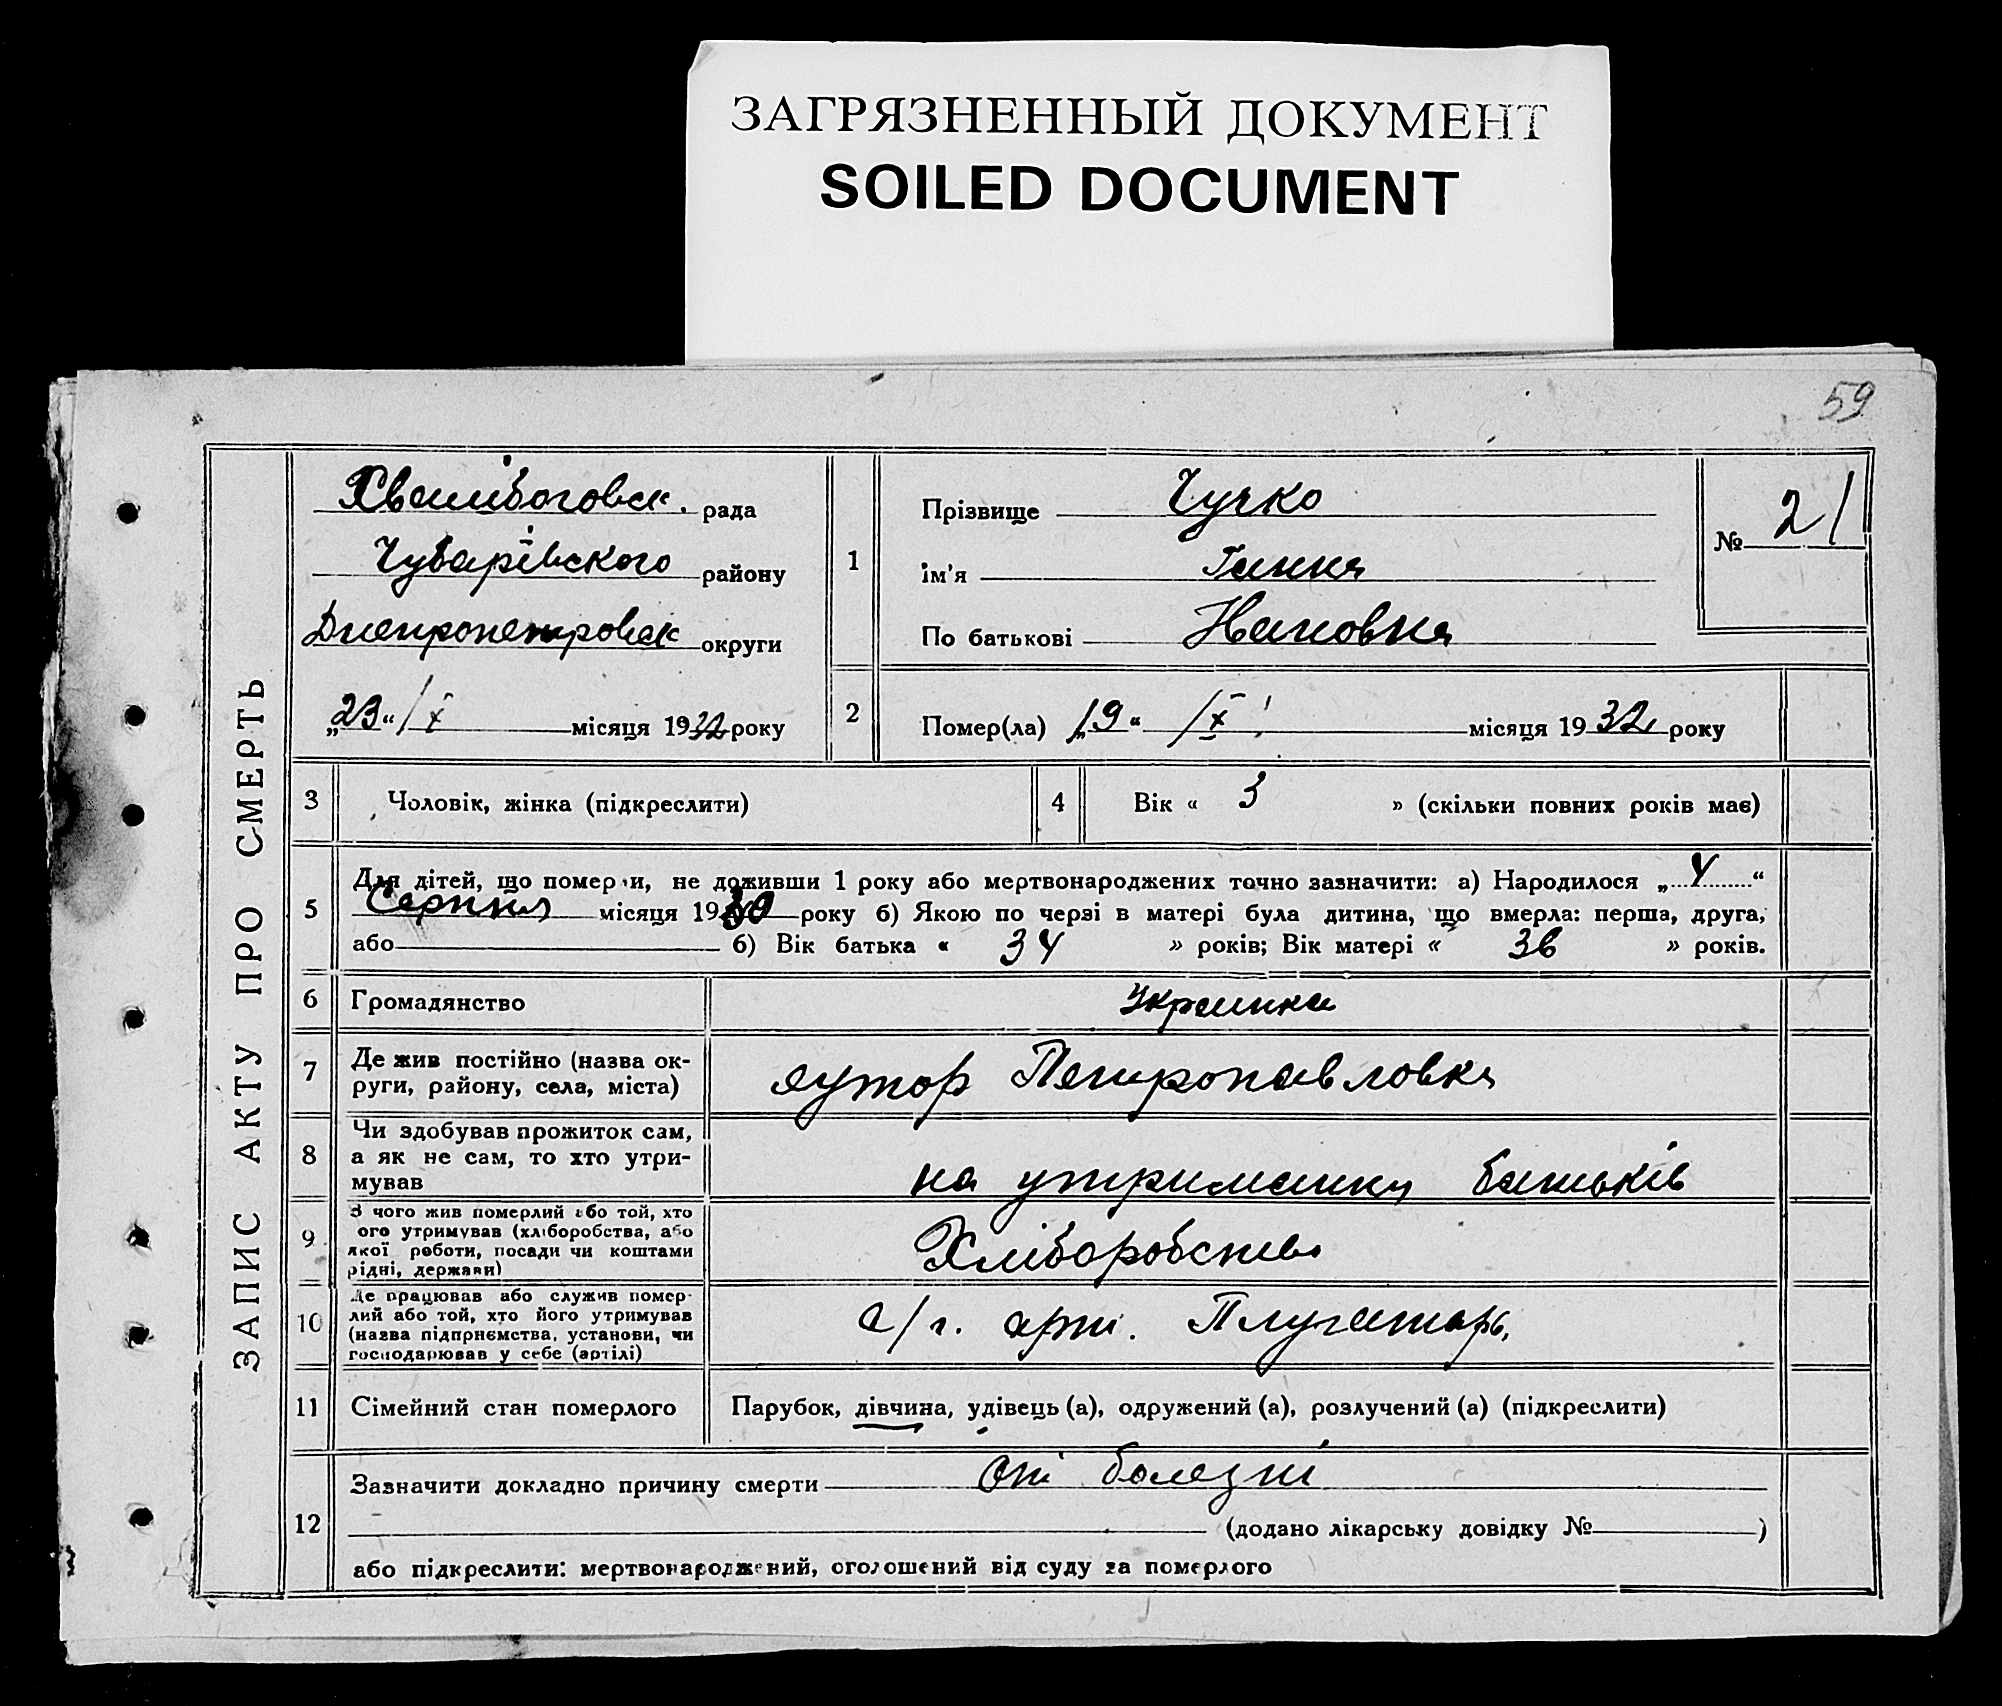 ЗАГРЯЗНЕННЫЙ ДОКУМЕНТ
SOILED DOCUMENT
59
ЗАПИС АКТУ ПРО СМЕРТЬ
Хвалібоговск. рада
Чубарівского району
Днепропетровск округи
„23“ /IX місяця 1932 року
1
Прізвище Чучко
ім'я Ганна
По батькові
№ 21
2 Помер(ла) „19“ /IX місяця 1932 року
3 Чоловік, жінка (підкреслити)
4 Вік « 3 » (скільки повних років має)
5 Для дітей, що померли, не доживши 1 року або мертвонароджених точно зазначити: а) Народилося „ 4 “
Серпня місяця 1930 року б) Якою по черзі в матері була дитина, що вмерла: перша, друга,
або б) Вік батька « 34 » років; Вік матері « 36 » років.
6 Громадянство Украинка
7 Де жив постійно (назва ок-
руги, району, села, міста) хутор Петропавловка
8 Чи здобував прожиток сам,
а як не сам, то хто утри-
мував на утриманку батьків
9 З чого жив померлий або той, хто
ого утримував (хліборобства, або
якої роботи, посади чи коштами
рідні, держави) Хліборобства
10 Де працював або служив помер-
лий або той, хто його утримував
(назва підприємства, установи, чи
господарював у себе (артілі) с/г. арт. Плугатарь,
11 Сімейний стан померлого Парубок, дівчина, удівець (а), одружений (а), розлучений (а) (підкреслити)
12 Зазначити докладно причину смерти От болезні
(додано лікарську довідку № )
або підкреслити: мертвонароджений, оголошений від суду за померлого